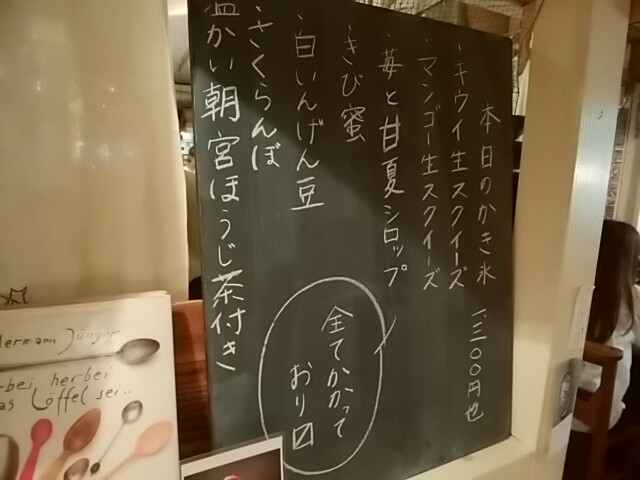 本日のかき氷 一三〇〇円也
・キウイ生スクイーズ
・マンゴー生スクイーズ
・苺と甘夏シロップ
・きび蜜
・白いんげん豆
・さくらんぼ
温かい朝宮ほうじ茶付き
全てかかって
おり〼
Hermann Jünger
herbei, herbei
was Löffel sei...